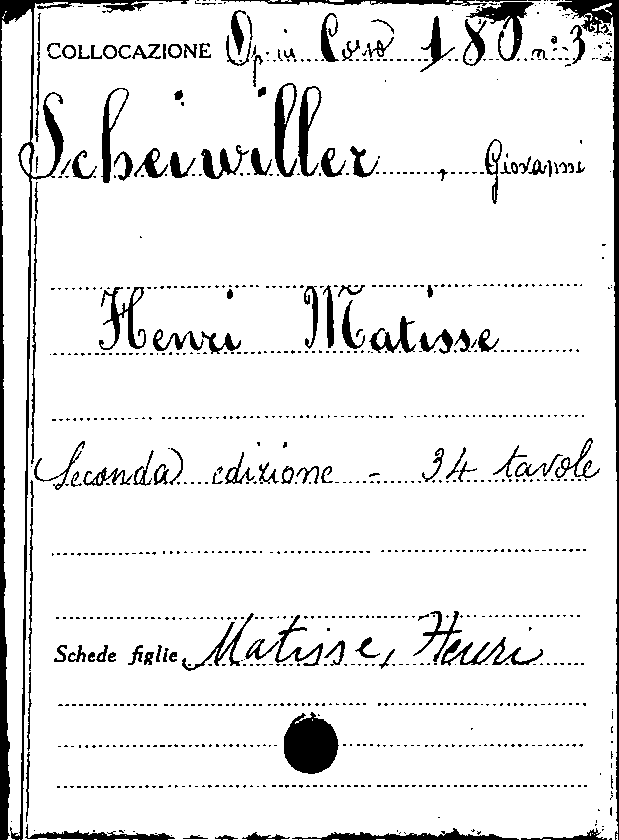 COLLOCAZIONE Op. in Corso 180 n° 3
Scheiwiller, Giovanni
Henri Matisse
Seconda edizione - 34 tavole
Schede figlie Matisse, Henri